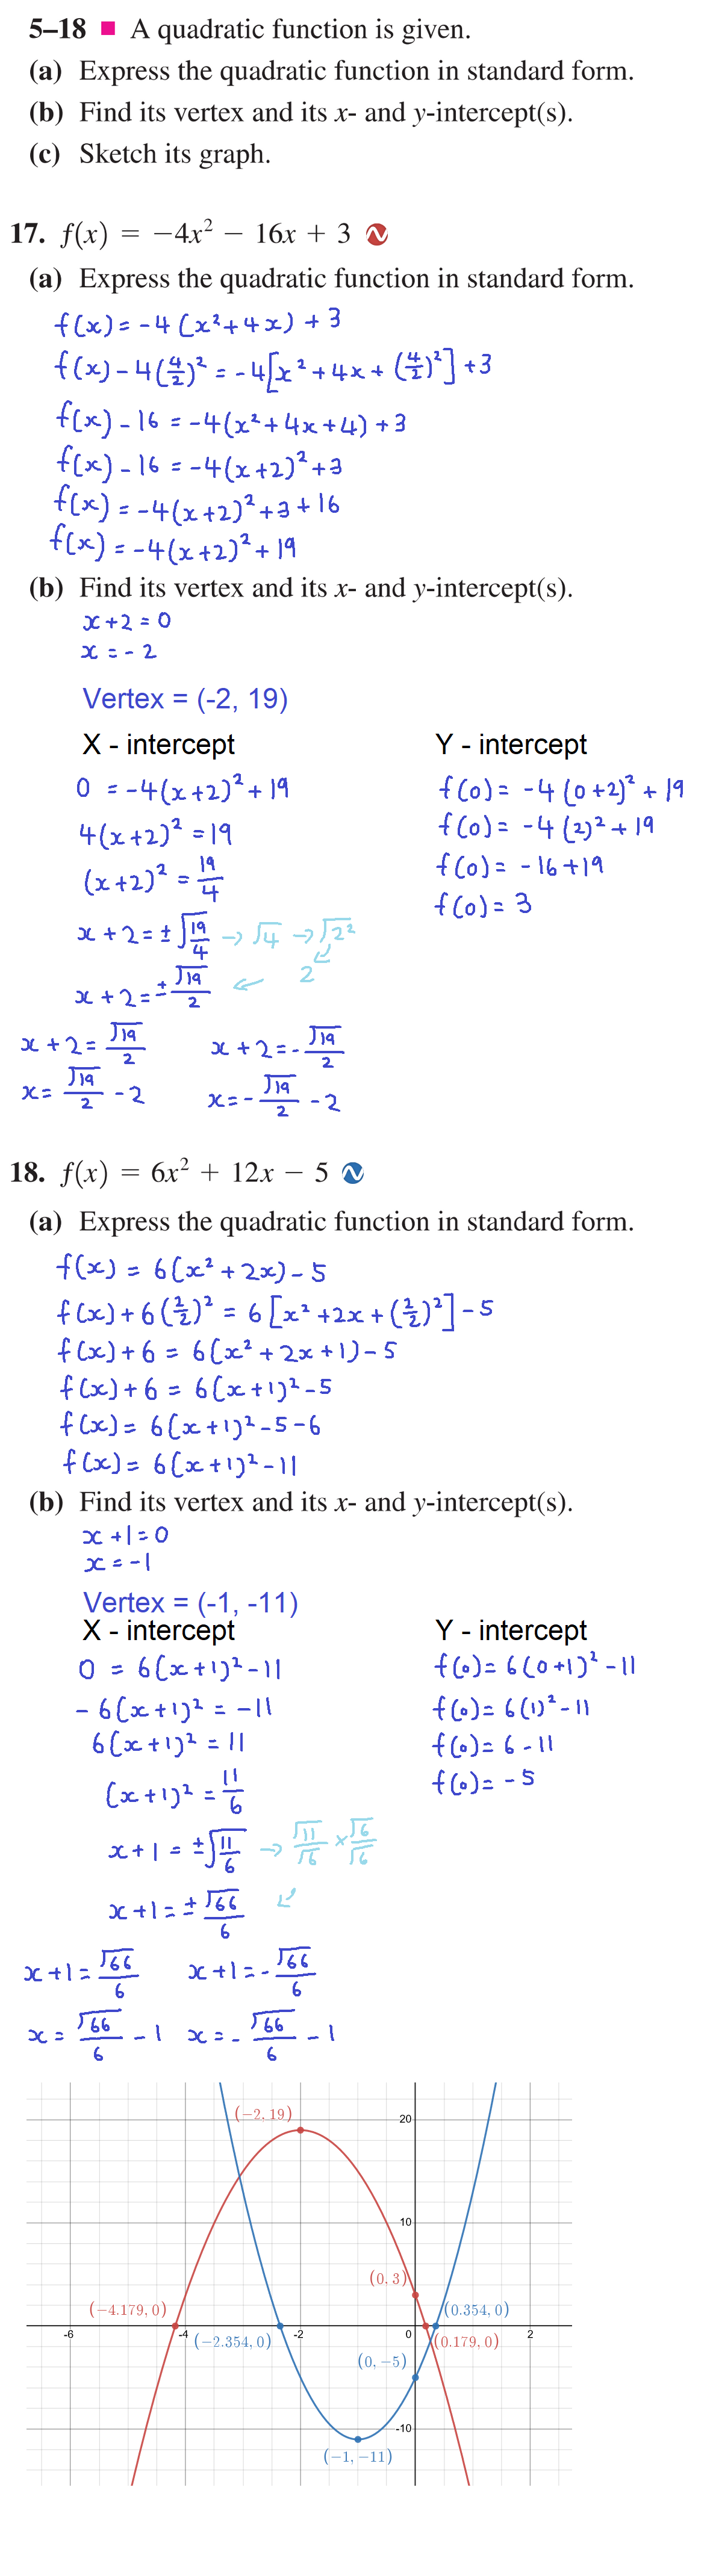 5–18 ■ A quadratic function is given.
(a) Express the quadratic function in standard form.
(b) Find its vertex and its x- and y-intercept(s).
(c) Sketch its graph.
17. f(x) = −4x² − 16x + 3
(a) Express the quadratic function in standard form.
f(x) = -4(x²+4x) + 3
f(x) - 4(4/2)² = -4[x² + 4x + (4/2)²] + 3
f(x) - 16 = -4(x² + 4x + 4) + 3
f(x) - 16 = -4(x+2)² + 3
f(x) = -4(x+2)² + 3 + 16
f(x) = -4(x+2)² + 19
(b) Find its vertex and its x- and y-intercept(s).
x+2 = 0
x = -2
Vertex = (-2, 19)
X - intercept
0 = -4(x+2)² + 19
4(x+2)² = 19
(x+2)² = 19/4
x + 2 = ±√(19/4) → √4 → √2²
x + 2 = ±√19/2 ← 2
x + 2 = √19/2
x = √19/2 - 2
x + 2 = -√19/2
x = -√19/2 - 2
Y - intercept
f(0) = -4(0+2)² + 19
f(0) = -4(2)² + 19
f(0) = -16+19
f(0) = 3
18. f(x) = 6x² + 12x − 5
(a) Express the quadratic function in standard form.
f(x) = 6(x² + 2x) - 5
f(x) + 6(2/2)² = 6[x² + 2x + (2/2)²] - 5
f(x) + 6 = 6(x² + 2x + 1) - 5
f(x) + 6 = 6(x+1)² - 5
f(x) = 6(x+1)² - 5 - 6
f(x) = 6(x+1)² - 11
(b) Find its vertex and its x- and y-intercept(s).
x + 1 = 0
x = -1
Vertex = (-1, -11)
X - intercept
0 = 6(x+1)² - 11
-6(x+1)² = -11
6(x+1)² = 11
(x+1)² = 11/6
x + 1 = ±√(11/6) → √11/√6 × √6/√6
x + 1 = ±√66/6
x + 1 = √66/6
x = √66/6 - 1
x + 1 = -√66/6
x = -√66/6 - 1
Y - intercept
f(0) = 6(0+1)² - 11
f(0) = 6(1)² - 11
f(0) = 6 - 11
f(0) = -5
(−2, 19)
20
10
(0, 3)
(−4.179, 0)
(0.354, 0)
-6
-4
-2
0
2
(−2.354, 0)
(0.179, 0)
(0, −5)
-10
(−1, −11)